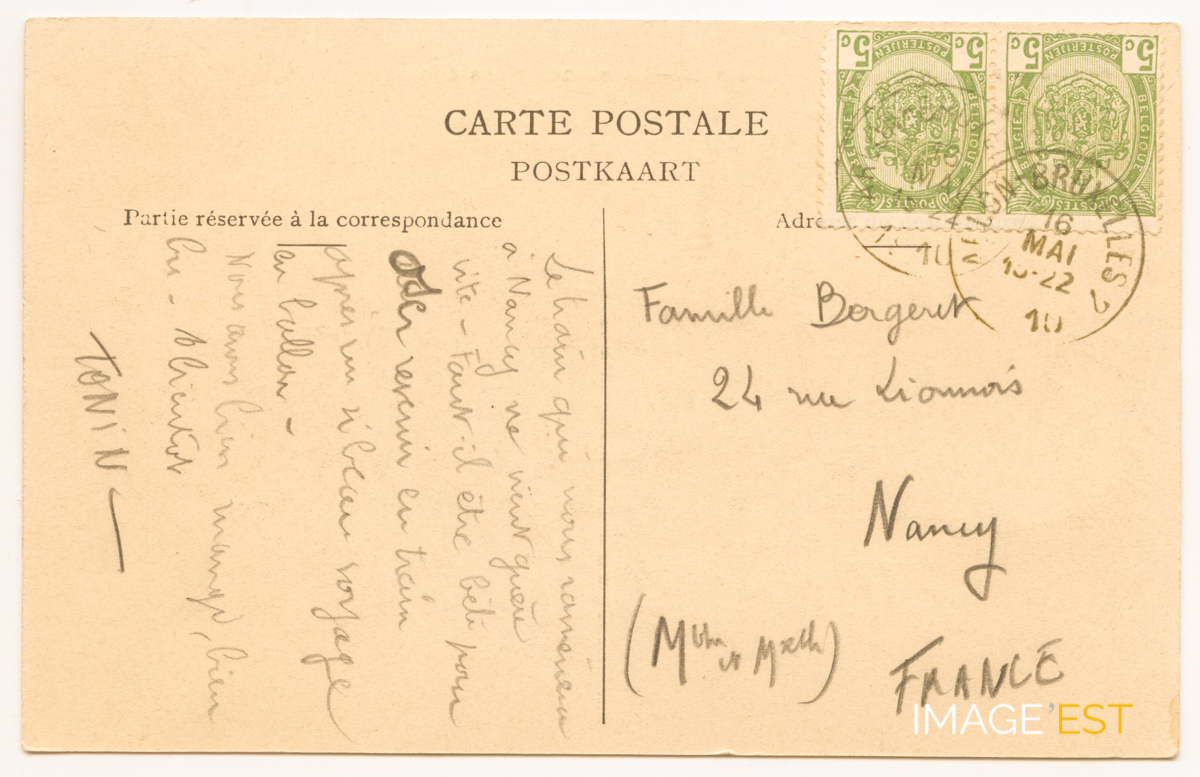 CARTE POSTALE
POSTKAART
Partie réservée à la correspondance
Le train qui nous ramènera
à Nancy ne vient guère
vite - Faut-il être bête pour
oser revenir en train
après un si beau voyage
en ballon -
Nous avons bien mangé, bien
bu - A bientôt
TONIN
Adre
Famille Bergeret
24 rue Lionnois
Nancy
(Mthe et)
FRANCE
5c 5c
POSTERIJEN
BELGIE BELGIQUE
POSTES
5c 5c
POSTERIJEN
BELGIE BELGIQUE
POSTES
BRUXELLES 2
16
MAI
10
IMAGE'EST